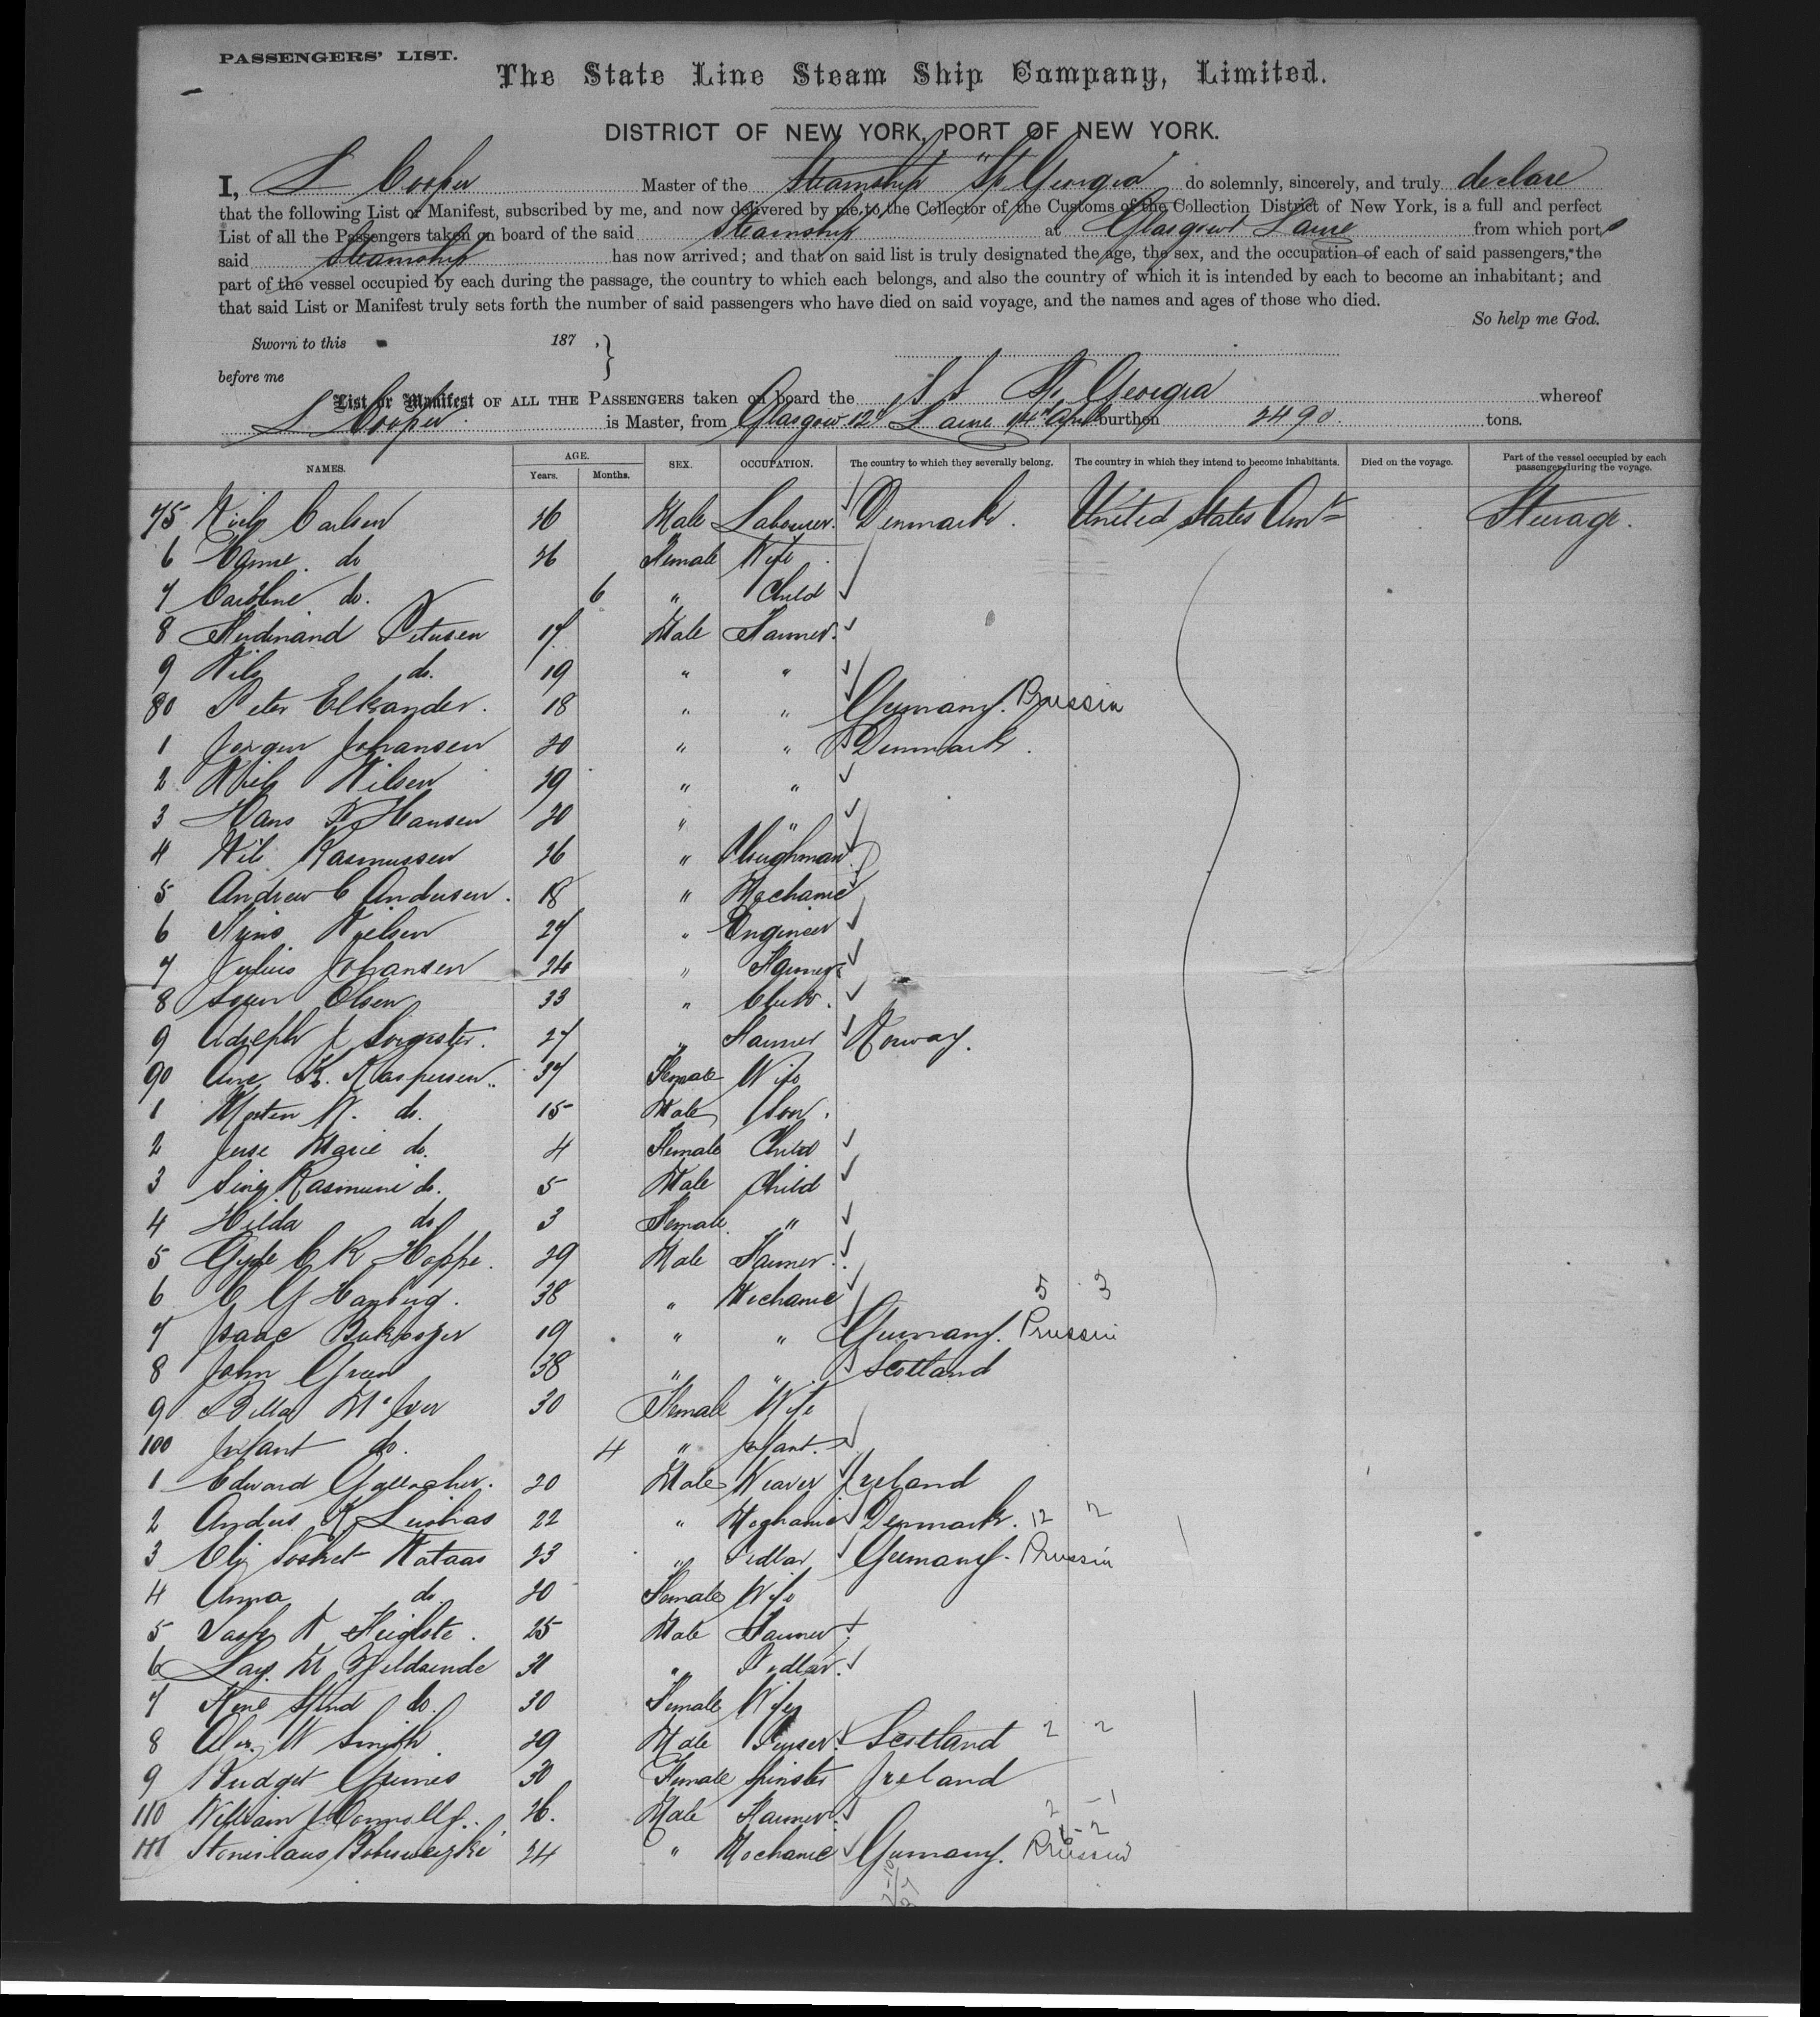 PASSENGERS' LIST.
The State Line Steam Ship Company, Limited.
DISTRICT OF NEW YORK, PORT OF NEW YORK.
I, L Cooper Master of the Steamship "St Georgia do solemnly, sincerely, and truly declare
that the following List or Manifest, subscribed by me, and now delivered by me to the Collector of the Customs of the Collection District of New York, is a full and perfect
List of all the Passengers taken on board of the said Steamship at Glasgow & Larne from which port
said Steamship has now arrived; and that on said list is truly designated the age, the sex, and the occupation of each of said passengers, the
part of the vessel occupied by each during the passage, the country to which each belongs, and also the country of which it is intended by each to become an inhabitant; and
that said List or Manifest truly sets forth the number of said passengers who have died on said voyage, and the names and ages of those who died.
So help me God.
Sworn to this 187 ,
before me
List or Manifest OF ALL THE PASSENGERS taken on board the S S St. Georgia whereof
L Cooper is Master, from Glasgow 12th Larne 14th April burthen 2490 tons.
NAMES. AGE. Years. Months. SEX. OCCUPATION. The country to which they severally belong. The country in which they intend to become inhabitants. Died on the voyage. Part of the vessel occupied by each passenger during the voyage.
75 Niels Carlsen 26 Male Labourer Denmark. United States Am Steerage.
6 Hanne do 26 Female Wife
7 Caroline do. 6 " Child
8 Ferdinand Petersen 17 Male Farmer
9 Nils do. 19 " "
80 Peter Elkander. 18 " " Germany. Prussia
1 Jorgen Johansen 20 " " Denmark.
2 Niels Nilsen 29 " "
3 Hans Hansen 20 " "
4 Nils Rasmussen 26 " Ploughman
5 Andrew C Andersen. 18 " Mechanic
6 Nielsen 27 " Engineer
7 Julius Johansen 24 " Farmer
8 Soren Olsen 33 " Clerk.
9 Adolph 27 " Farmer Norway.
90 Ane K. Kaspersen 37 Female Wife
1 Morten N. do. 15 Male Son.
2 Jense Marie do. 4 Female Child
3 Rasmine do. 5 Male Child
4 Hilda do 3 Female "
5 C R Hoppe. 29 Male Farmer.
6 C G 38 " Mechanic 5 3
7 Isaac 19 " " Germany. Prussia
8 John Green 38 " " Scotland
9 Bella McIver 30 Female Wife
100 Infant do. 4 " Infant.
1 Edward Gallagher. 20 Male Weaver Ireland
2 Andus K 22 " Mechanic Denmark. 12 2
3 23 " Pedlar Germany. Prussia
4 Anna do 20 Female Wife
5 N 25 Male Farmer.
6 M 31 " Pedlar.
7 do. 30 Female Wife
8 Alex. W Smith 29 Male Scotland 2 2
9 Bridget Grimes 30 Female Spinster Ireland
110 William J Connolly. 26. Male Farmer. 2 - 1
111 Stanislaus 24 " Mechanic Germany. Prussia